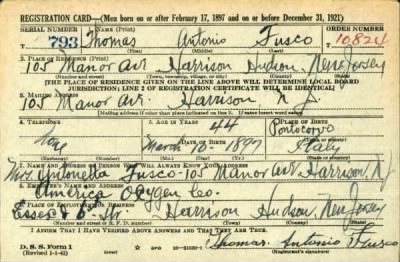 REGISTRATION CARD—(Men born on or after February 17, 1897 and on or before December 31, 1921)
SERIAL NUMBER 1. NAME (Print) ORDER NUMBER
793 Thomas Antonio Fusco 10824
(First) (Middle) (Last)
2. PLACE OF RESIDENCE (Print)
105 Manor Av. Harrison Hudson, New Jersey
(Number and street) (Town, township, village, or city) (County) (State)
[THE PLACE OF RESIDENCE GIVEN ON THE LINE ABOVE WILL DETERMINE LOCAL BOARD
JURISDICTION; LINE 2 OF REGISTRATION CERTIFICATE WILL BE IDENTICAL]
3. MAILING ADDRESS
105 Manor Av. Harrison N J.
[Mailing address if other than place indicated on line 2. If same insert word same]
4. TELEPHONE 5. AGE IN YEARS 6. PLACE OF BIRTH
44 Pontecorvo
DATE OF BIRTH
March 10 - 1897 Italy
(Mo.) (Day) (Yr.) (State or country)
7. NAME AND ADDRESS OF PERSON WHO WILL ALWAYS KNOW YOUR ADDRESS
Mrs. Antonetta Fusco - 105 Manor Av. Harrison, N.J.
8. EMPLOYER'S NAME AND ADDRESS
America Oxygen Co.
9. PLACE OF EMPLOYMENT OR BUSINESS
Essex & 5- Str. Harrison Hudson, New Jersey
(Number and street or R. F. D. number) (Town) (County) (State)
I AFFIRM THAT I HAVE VERIFIED ABOVE ANSWERS AND THAT THEY ARE TRUE.
D. S. S. Form 1
(Revised 1-1-42) (over) Thomas Antonio Fusco